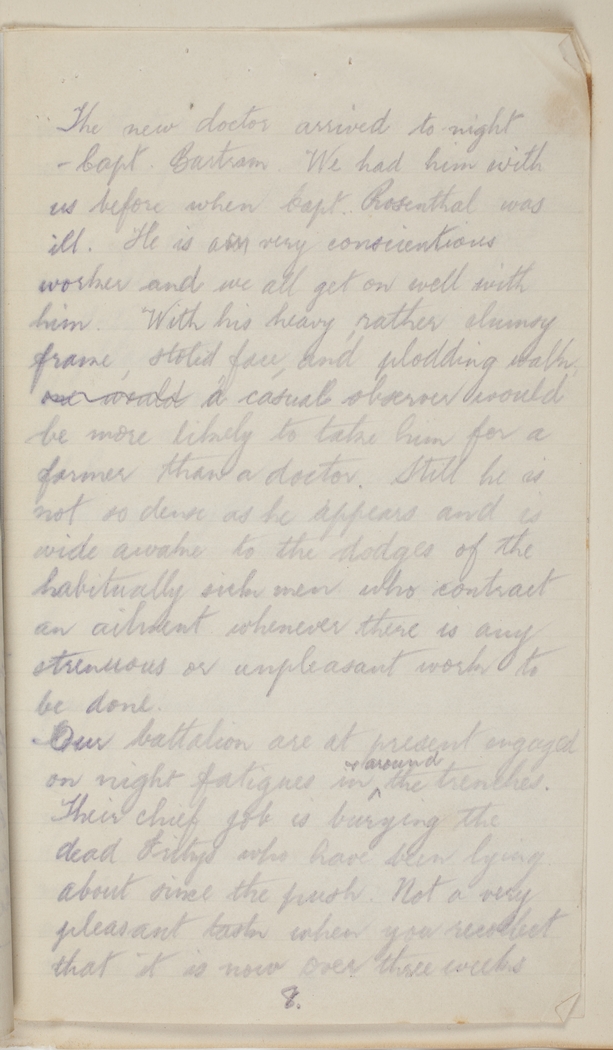 The new doctor arrived to night
- Capt. Bartram. We had him with
us before when Capt. Rosenthal was
ill. He is a very conscientious
worker and we all get on well with
him. With his heavy, rather clumsy
frame, stolid face, and plodding walk,
one would a casual observer would
be more likely to take him for a
farmer than a doctor. Still he is
not so dense as he appears and is
wide awake to the dodges of the
habitually sick men who contract
an ailment whenever there is any
strenuous or unpleasant work to
be done.
Our battalion are at present engaged
on night fatigues in & around the trenches.
Their chief job is burying the
dead Fritzs who have been lying
about since the push. Not a very
pleasant task when you recollect
that it is now over three weeks
8.